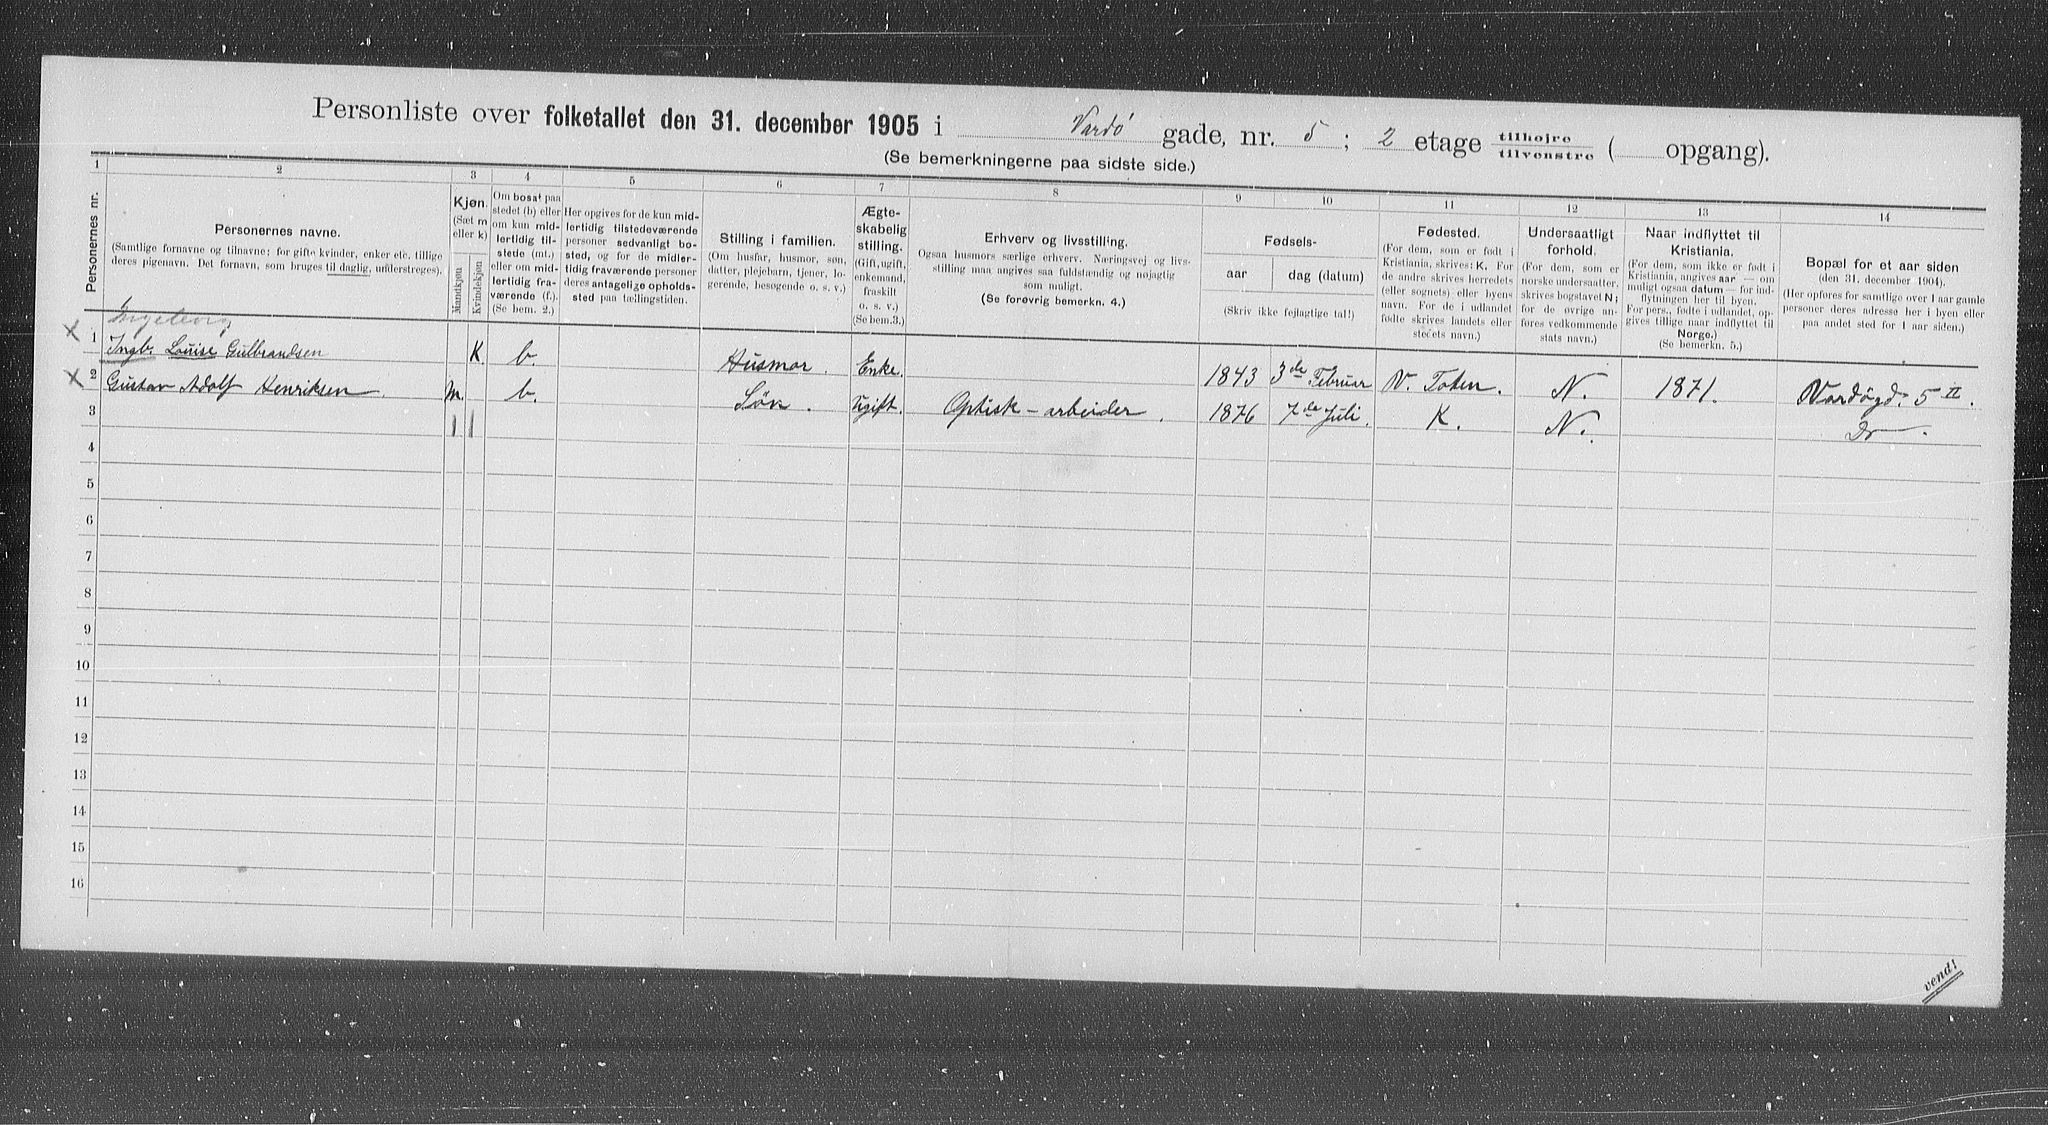 Personliste over folketallet den 31. december 1905 i Vardø gade, nr. 5; 2 etage tilhøjre tilvenstre ( opgang).
(Se bemerkningerne paa sidste side.)
1 2 3 4 5 6 7 8 9 10 11 12 13 14
Personernes nr.
Personernes navne.
(Samtlige fornavne og tilnavne; for gifte kvinder, enker etc. tillige
deres pigenavn. Det fornavn, som bruges til daglig, understreges).
Kjøn.
(Sæt m
eller k)
Mandkjøn
Kvindekjøn
Om bosat paa
stedet (b) eller
om kun mid-
lertidig til-
stede (mt.)
eller om mid-
lertidig fra-
værende (f.).
(Se bem. 2.)
Her opgives for de kun mid-
lertidig tilstedeværende
personer sedvanligt bo-
sted, og for de midler-
tidig fraværende personer
deres antagelige opholds-
sted paa tællingstiden.
Stilling i familien.
(Om husfar, husmor, søn,
datter, plejebarn, tjener, lo-
gerende, besøgende o. s. v.)
Ægte-
skabelig
stilling.
(Gift, ugift,
enkemand,
fraskilt
o. s. v.)
(Se bem. 3.)
Erhverv og livsstilling.
Ogsaa husmors særlige erhverv. Næringsvej og livs-
stilling maa angives saa fuldstændig og nøjagtig
som muligt.
(Se forøvrig bemerkn. 4.)
Fødsels-
aar dag (datum)
(Skriv ikke fejlagtige tal!)
Fødested.
(For dem, som er født i
Kristiania, skrives: K. For
de andre skrives herredets
(eller sognets) eller byens
navn. For de i udlandet
fødte skrives landets eller
stedets navn.)
Undersaatligt
forhold.
(For dem, som er
norske undersaatter.
skrives bogstavet N;
for de øvrige an-
føres vedkommende
stats navn.)
Naar indflyttet til
Kristiania.
(For dem, som ikke er født i
Kristiania, angives aar — om
muligt ogsaa datum — for ind-
flytningen her til byen.
For pers., fødte i udlandet, op-
gives tillige naar indflyttet til
Norge.)
(Se bemerkn. 5.)
Bopæl for et aar siden
(den 31. december 1904).
(Her opføres for samtlige over 1 aar gamle
personer deres adresse her i byen eller
paa andet sted for 1 aar siden.)
Ingeborg
x 1 Ingb. Louise Gulbrandsen K b. Husmor. Enke. 1843 3de Februar V. Toten. N. 1871. Vardøgd. 5 II.
x 2 Gustav Adolf Henriksen. m. b. Søn. Ugift. Optisk-arbeider. 1876 7de Juli. K. N. Do.
3 | |
4
5
6
7
8
9
10
11
12
13
14
15
16
vend!